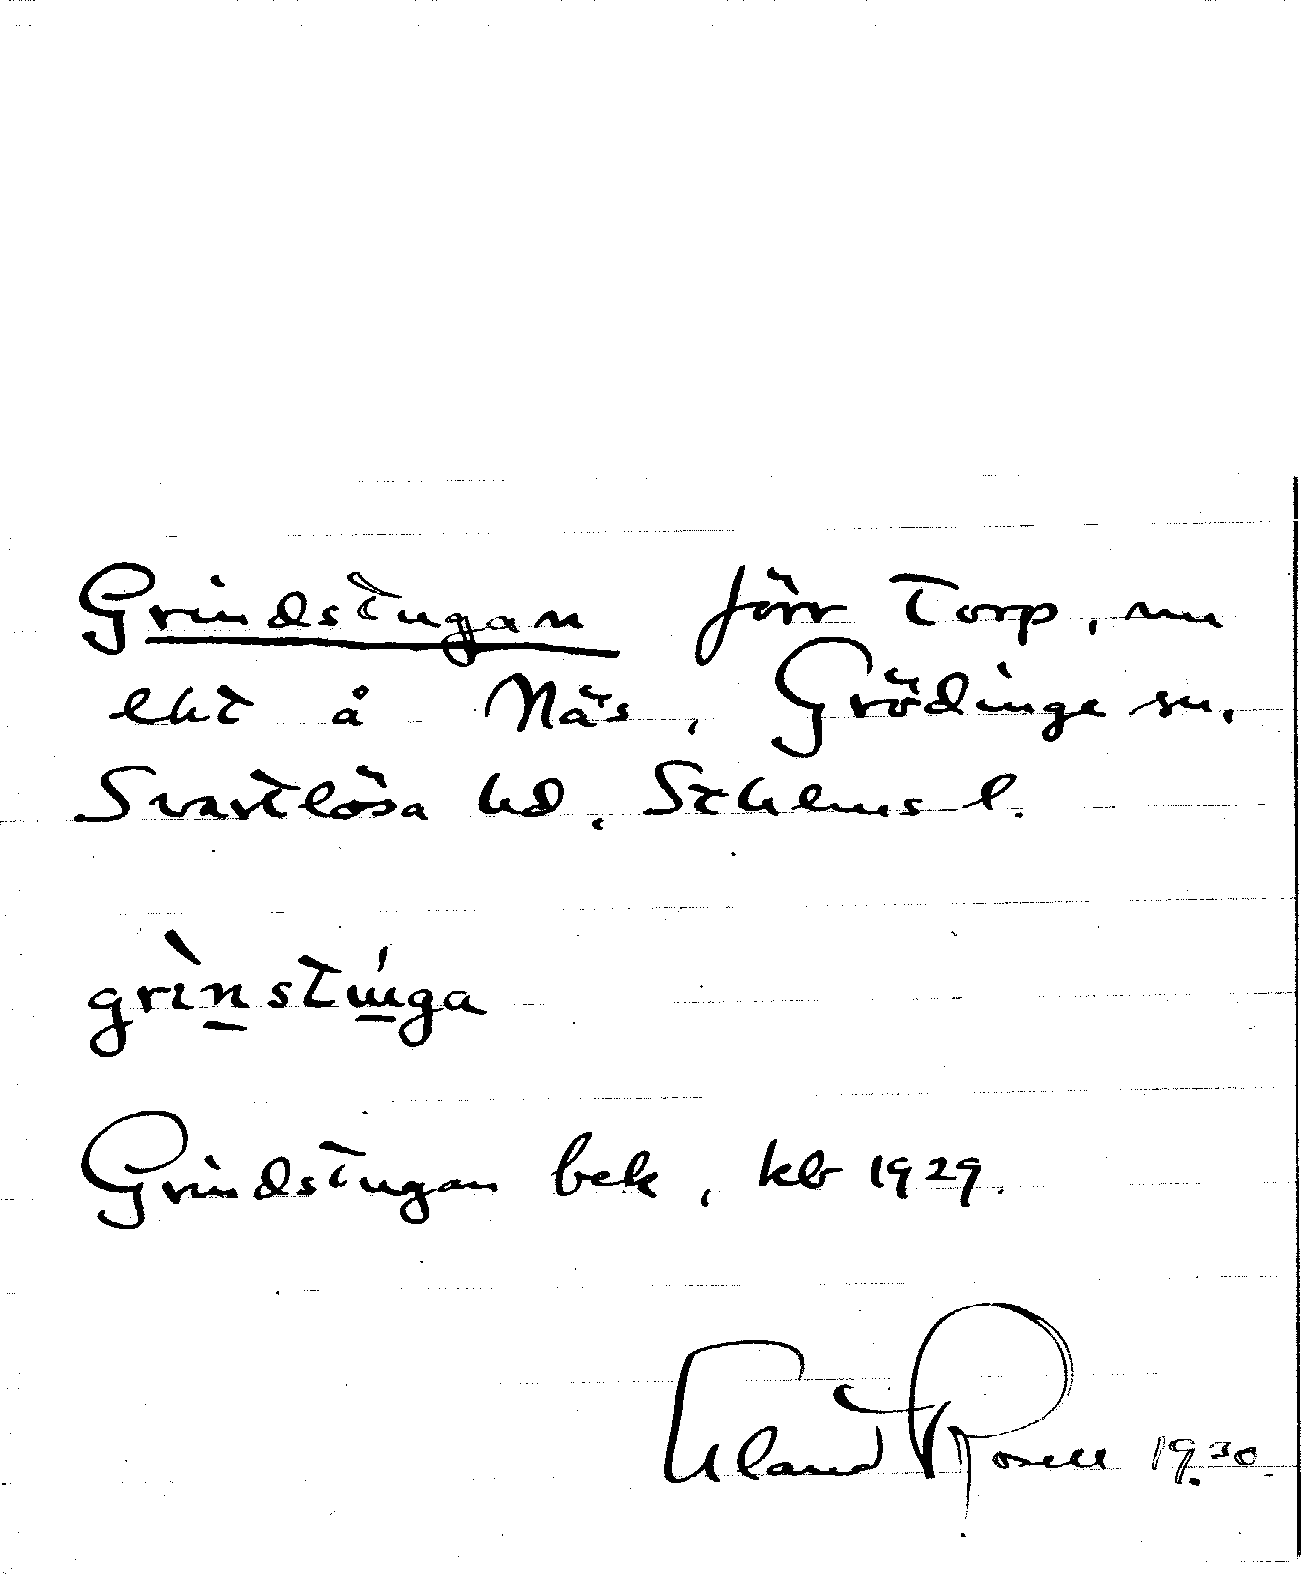 Grindstugan förr torp, nu
lht å Näs, Grödinge sn,
Svartlösa hd, Sthlms l.
grìnstúga
Grindstugan bek, kb 1929.
Rosell 1930